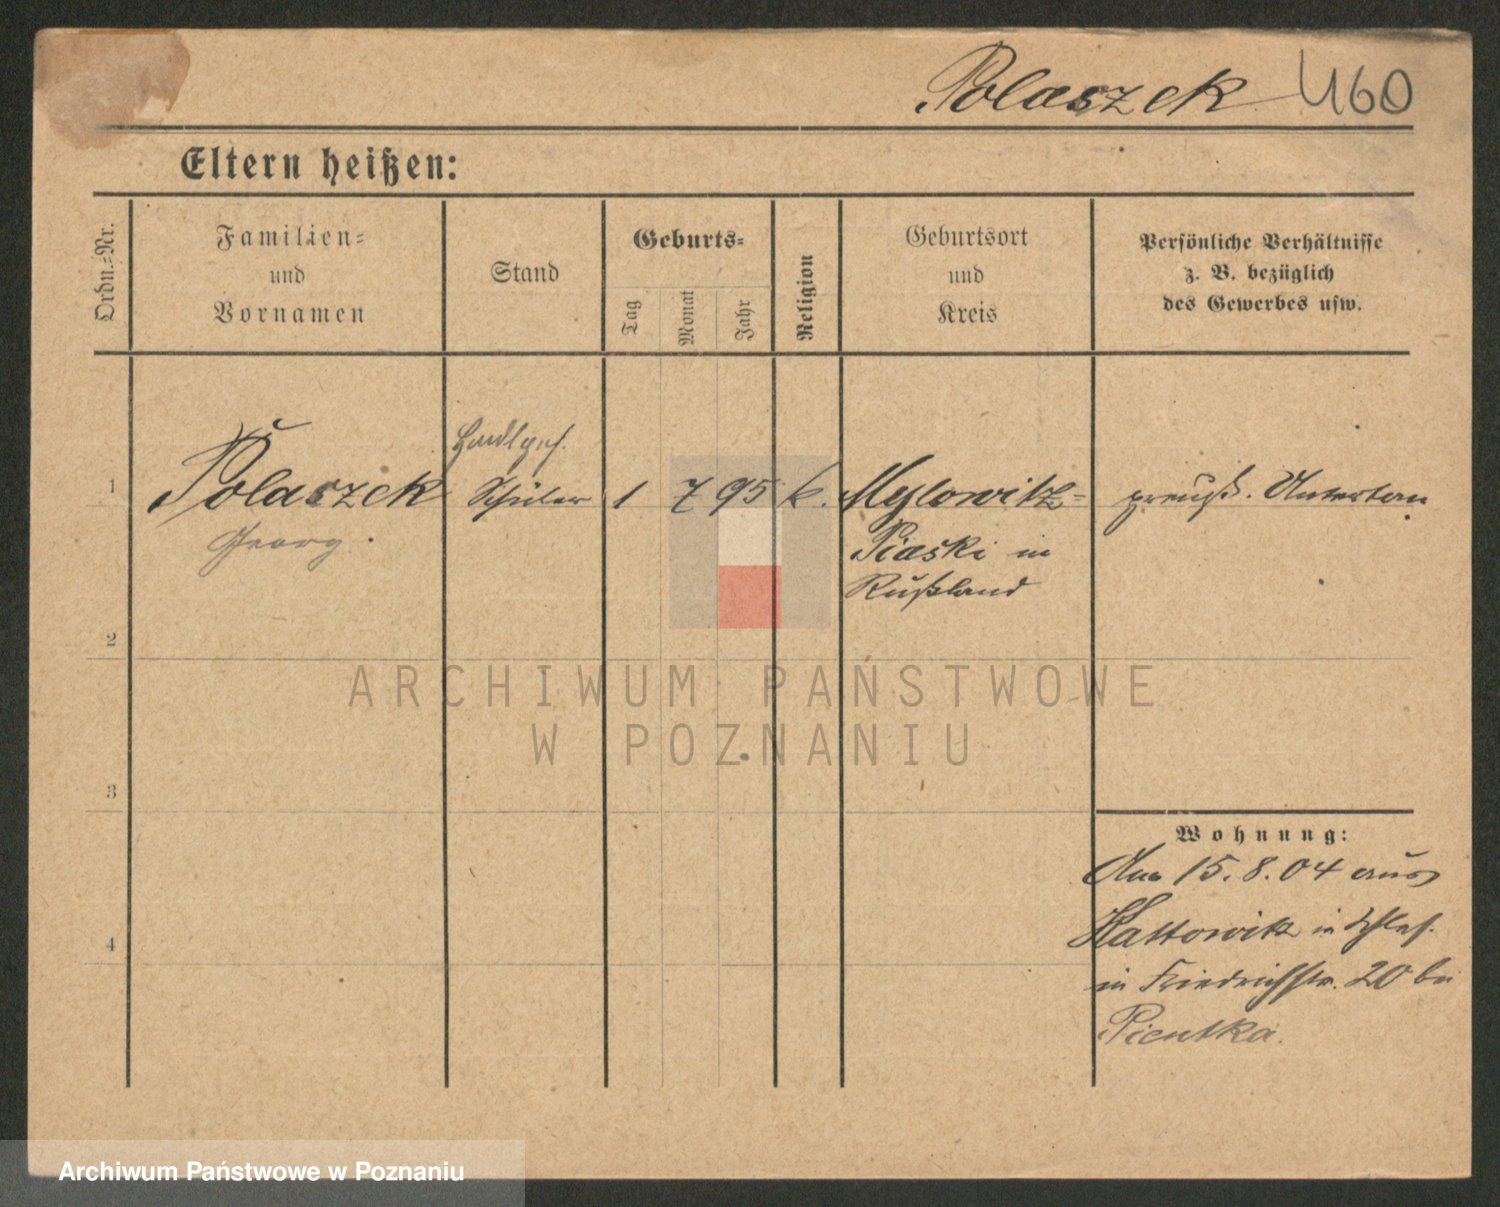 Polaszek 460
Eltern heißen:
Ordn.=Nr.
Familien=
und
Vornamen
Stand
Geburts=
Tag
Monat
Jahr
Religion
Geburtsort
und
Kreis
Persönliche Verhältnisse
z. B. bezüglich
des Gewerbes usw.
Handlgeh.
1 Polaszek Schüler 1 7 95 k. Myslowitz= preuß. Untertan
Georg. Piaski in
Rußland
2
3
4
Wohnung:
Am 15.8.04 aus
Kattowitz in Schles.
in Friedrichstr. 20 bei
Pientka.
ARCHIWUM PAŃSTWOWE
W POZNANIU
Archiwum Państwowe w Poznaniu